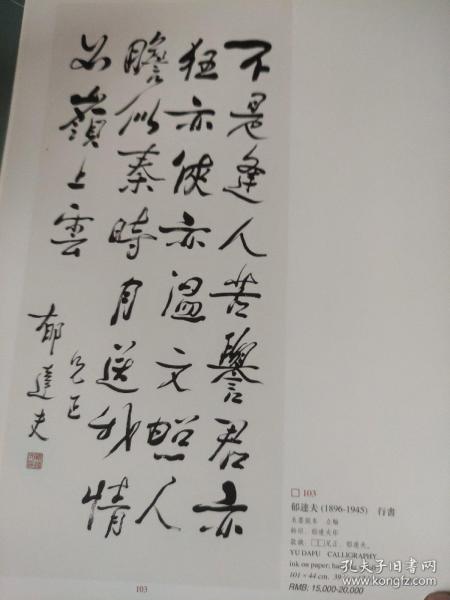 不是逢人苦譽君亦
狂亦俠亦溫文照人
膽似秦時月送我情
如嶺上雲
兄正
郁達夫
□ 103
郁達夫 (1896-1945) 行書
水墨紙本 立軸
鈐印:郁達夫印
款識:□□兄正,郁達夫。
YU DAFU CALLIGRAPHY
ink on paper;
101 × 44 cm. 39
RMB: 15,000-20,000
103
孔夫子旧书网